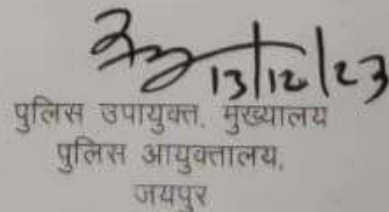 13/12/23
पुलिस उपायुक्त, मुख्यालय
पुलिस आयुक्तालय,
जयपुर